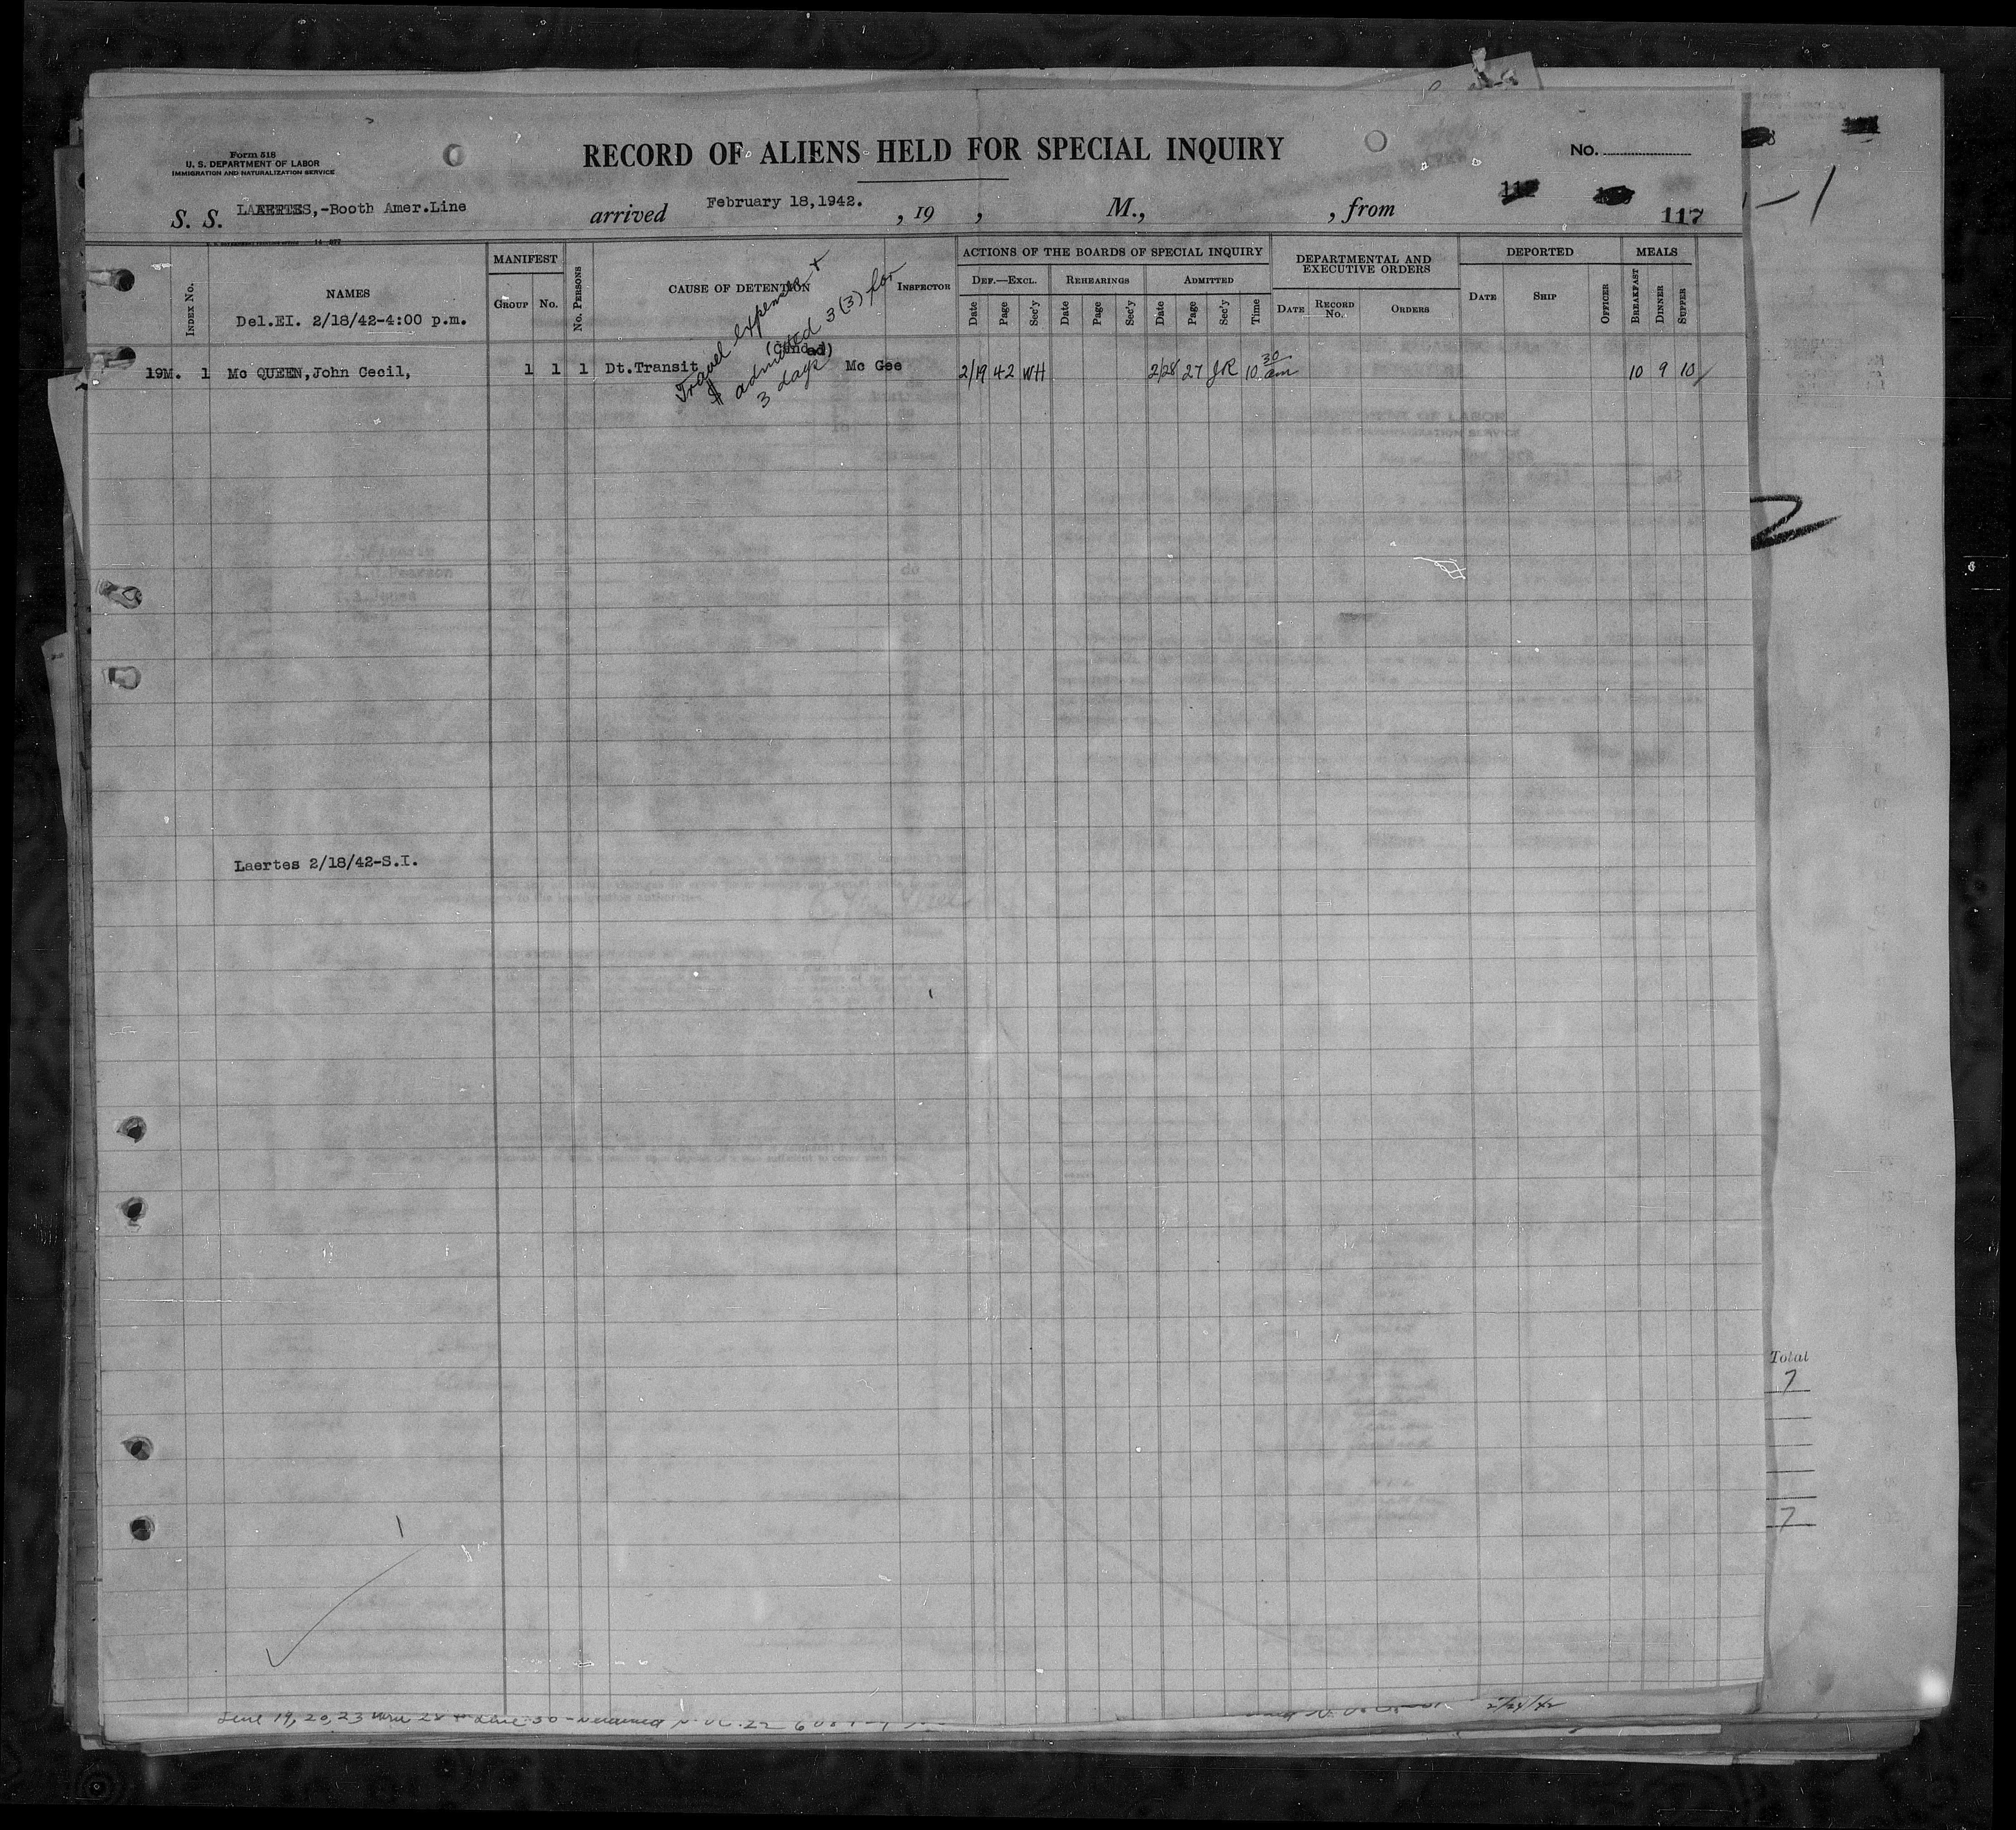 Form 518
U. S. DEPARTMENT OF LABOR
IMMIGRATION AND NATURALIZATION SERVICE
RECORD OF ALIENS HELD FOR SPECIAL INQUIRY
No.
S. S. LAERTES,-Booth Amer.Line arrived February 18,1942. , 19 , M., , from
117
INDEX No.
NAMES
Del.EI. 2/18/42-4:00 p.m.
MANIFEST
GROUP No.
No. PERSONS
CAUSE OF DETENTION
INSPECTOR
ACTIONS OF THE BOARDS OF SPECIAL INQUIRY
DEF.—EXCL. REHEARINGS ADMITTED
Date Page Sec'y Date Page Sec'y Date Page Sec'y Time
DEPARTMENTAL AND EXECUTIVE ORDERS
DATE RECORD No. ORDERS
DEPORTED
DATE SHIP OFFICER
MEALS
BREAKFAST DINNER SUPPER
19M. 1 Mc QUEEN,John Cecil, 1 1 1 Dt.Transit Mc Gee 2/19 42 WH 2/28 27 JR 10 30 am 10 9 10
Travel expenses +
admitted 3(3) for
3 days
Laertes 2/18/42-S.I.
1
Total
7
7
2/24/42